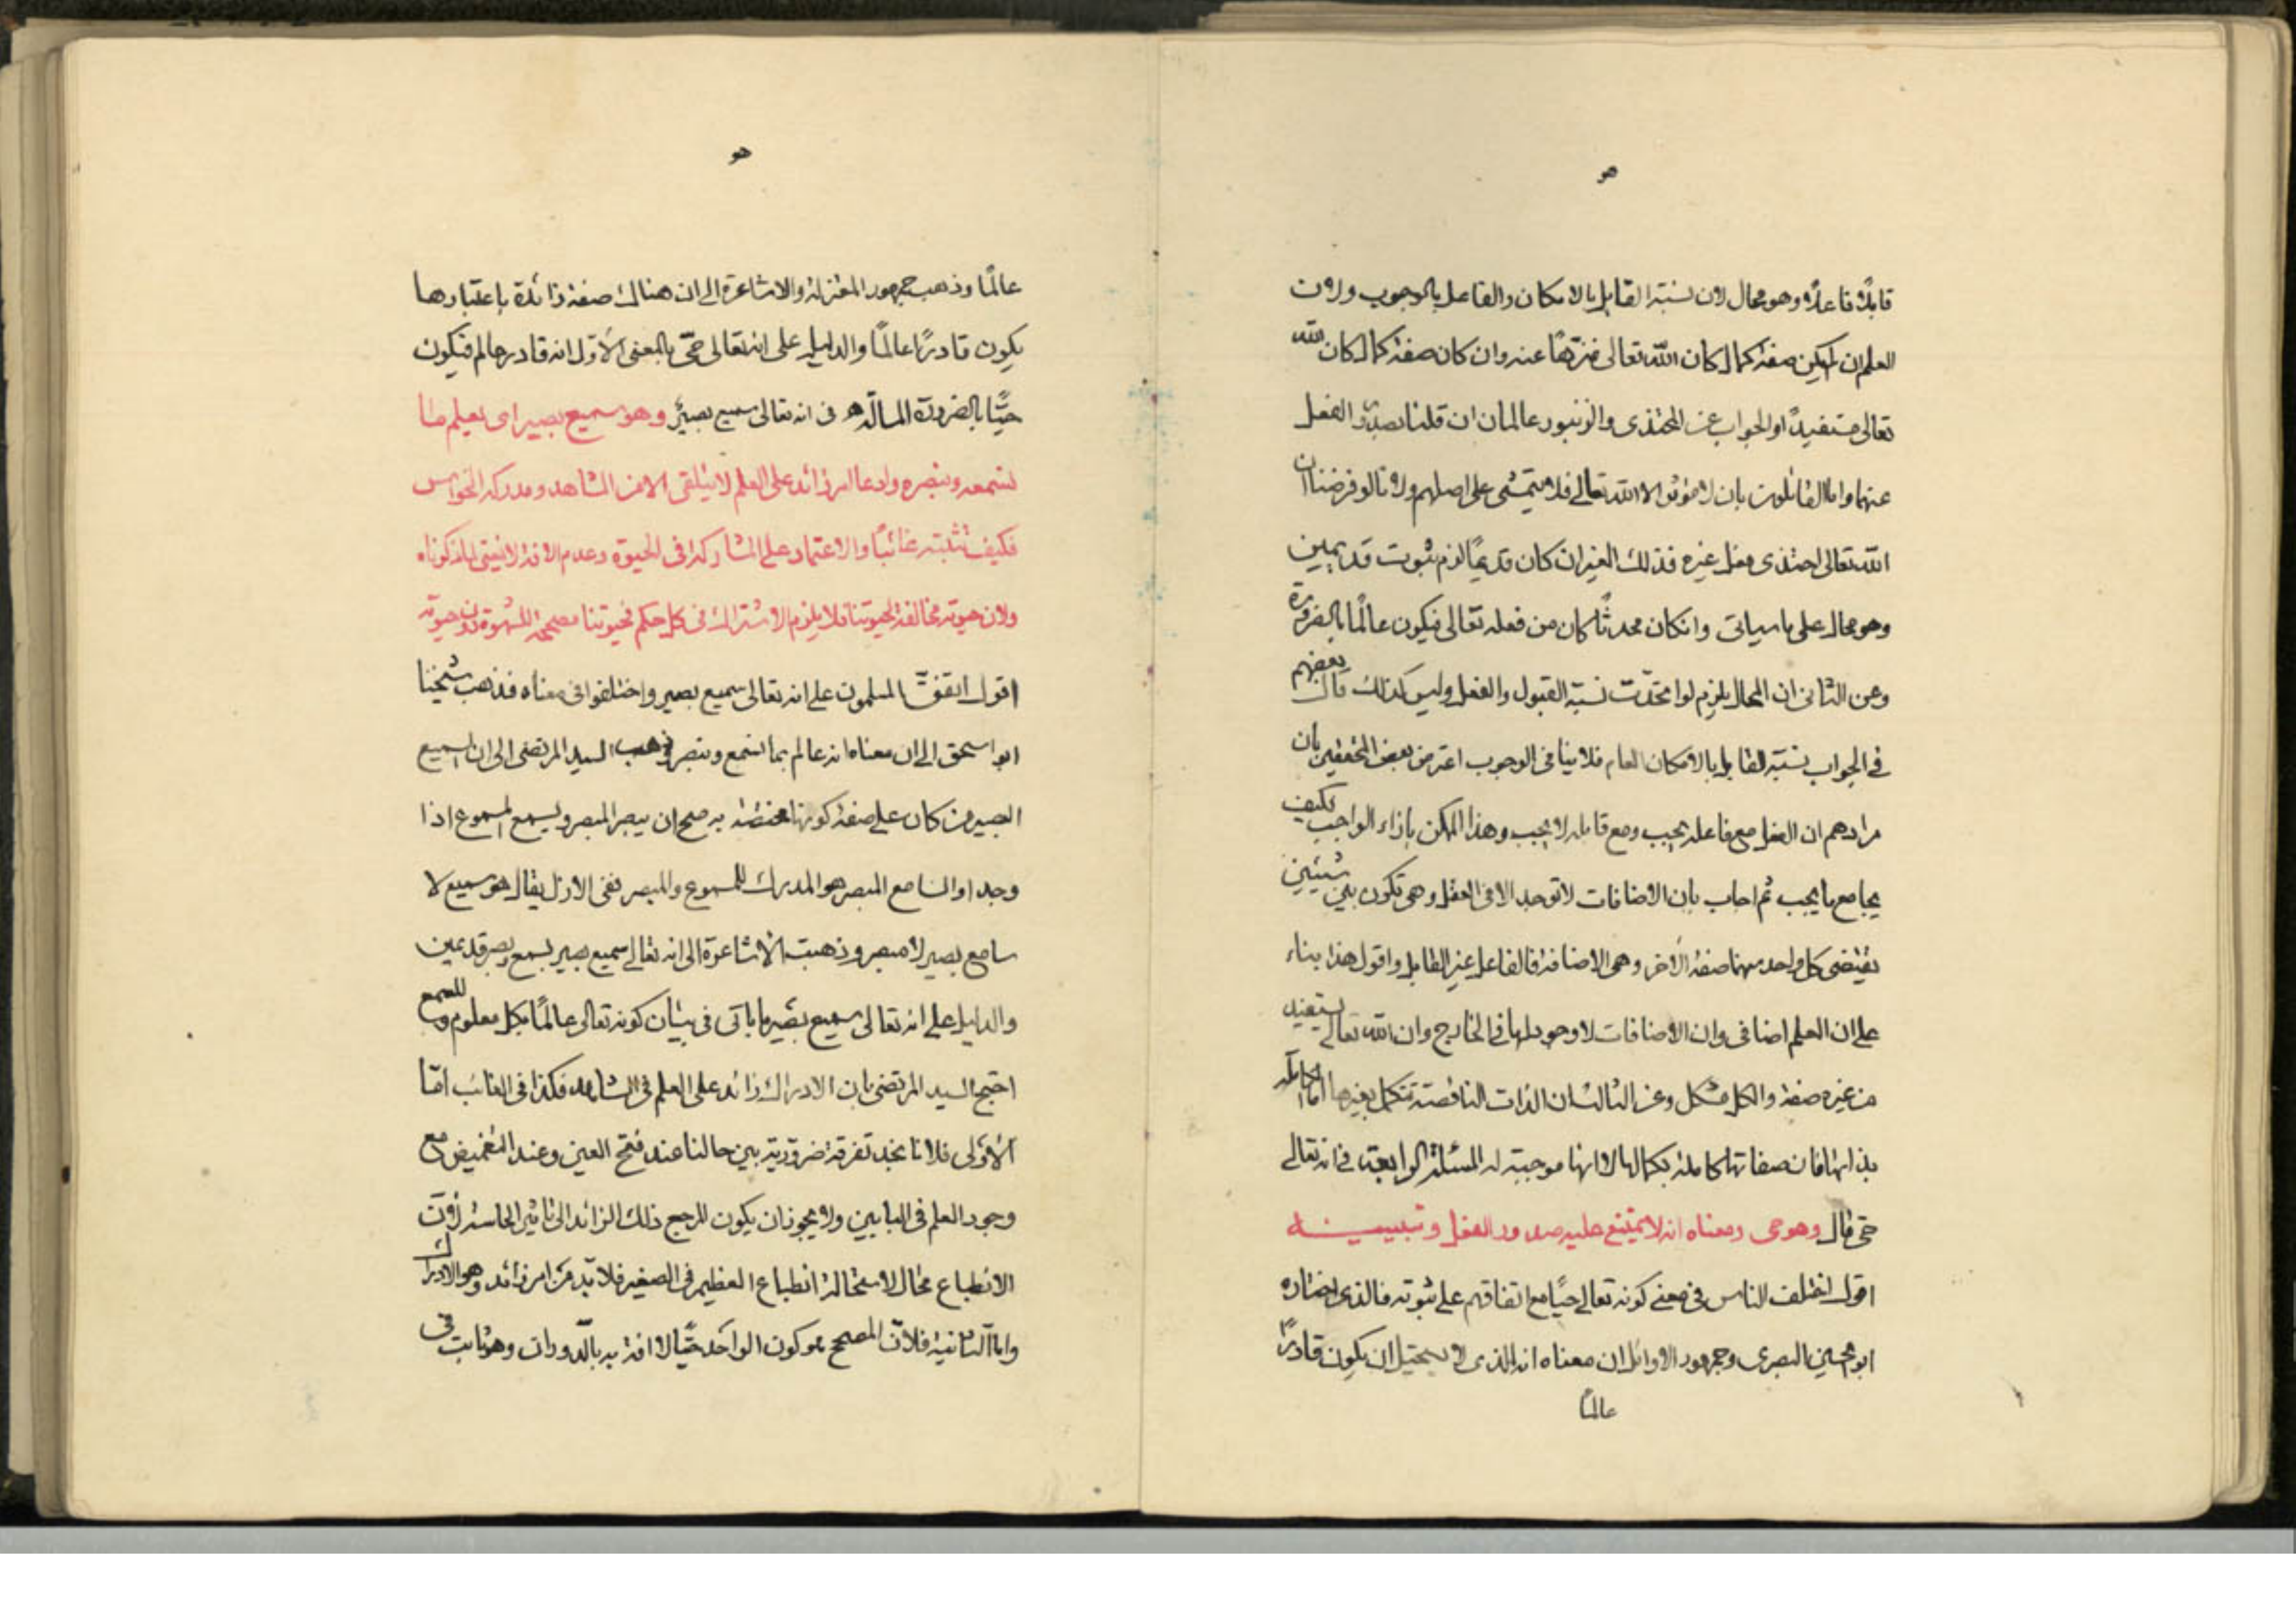 هو
قابلاً فاعلاً وهو محال لان نسبة القابل بالامكان والفاعل بالوجوب ولان
العلم ان لم يكن صفة كمال كان الله تعالى منزهًا عنه وان كان صفة كمال كان الله
تعالى مستفيدًا والجواب عن المحتذى والزنبور عالمان ان قلنا بصدور الفعل
عنهما واما القائلون بان لا موثر الا الله تعالى فلا يتمشى على اصلهم ولانا لو فرضنا ان
الله تعالى احتذى فعل غيره فذلك الغير ان كان قديمًا لزم ثبوت قديمين
وهو محال على ما سياتى وانكان محدثًا كان من فعله تعالى فيكون عالمًا بالضرورة
وعن الثانى ان المحال يلزم لو اتحدت نسبة القبول والفعل وليس كذلك قال بعضهم
فى الجواب نسبة القابل بالامكان العام فلا ينافى الوجوب اعترض بعض المحققين بان
مرادهم ان الفعل مع فاعله يجب ومع قابله لا يجب وهذا الممكن بازاء الواجب فكيف
يجامع ما يجب ثم اجاب بان الاضافات لا توجد الا فى العقل وهى تكون بين شيئين
يقتضى كل واحد منهما صفة الآخر وهى الاضافة فالفاعل غير القابل واقول هذا بناء
على ان العلم اضافى وان الاضافات لا وجود لها فى الخارج وان الله تعالى يستفيد
من غيره صفة والكل مشكل وعن الثالث ان الذات الناقصة تتكمل بغيرها اما الكاملة
بذاتها فان صفاتها كاملة بكمالها لا انها موجبة له المسئلة الرابعة فى انه تعالى
حى قال وهو حى ومعناه انه لا يمتنع عليه صدور الفعل وتبيينه
اقول اختلف الناس فى معنى كونه تعالى حيًا مع اتفاقهم على ثبوته فالذى اختاره
ابو الحسين البصرى وجمهور الاوائل ان معناه انه الذى لا يستحيل ان يكون قادرًا
عالمًا
هو
عالمًا وذهب جمهور المعتزلة والاشاعرة الى ان هناك صفة زائدة باعتبارها
يكون قادرًا عالمًا والدليل على انه تعالى حى بالمعنى الاول انه قادر عالم فيكون
حيًا بالضرورة المسالة فى انه تعالى سميع بصير وهو سميع بصير اى يعلم ما
نسمعه ونبصره وادعا امر زائد على العلم لا يتلقى الا من الشاهد ومدركه الحواس
فكيف نثبته غائبًا والاعتماد على المشاركة فى الحيوة وعدم الافة لا يبتى لما ذكوناه
ولان حيوته مخالفة لحيوتنا فلا يلزم الاشتراك فى كل حكم فحيوتنا مصححة للشهوة دون حيوته
اقول اتفق المسلمون على انه تعالى سميع بصير واختلفوا فى معناه فذهب شيخنا
ابو اسحق الى ان معناه انه عالم بما نسمع ونبصر وذهب السيد المرتضى الى ان السميع
البصير من كان على صفة كونها مختصة به صح ان يبصر المبصر ويسمع المسموع اذا
وجد او السامع المبصر هو المدرك للمسموع والمبصر ففى الازل يقال هو سميع لا
سامع بصير لا مبصر وذهبت الاشاعرة الى انه تعالى سميع بصير بسمع وبصر قديمين
والدليل على انه تعالى سميع بصير ما ياتى فى بيان كونه تعالى عالمًا بكل معلوم وللسمع
احتج السيد المرتضى بان الادراك زائد على العلم فى الشاهد فكذا فى الغائب اما
الاولى فلانا نجد تفرقة ضرورية بين حالنا عند فتح العين وعند التغميض مع
وجود العلم فى البابين ولا يجوز ان يكون المرجع ذلك الزائد الى تاثير الحاسة لان
الانطباع محال لاستحالة انطباع العظيم فى الصغير فلا بد من امر زائد وهو الادراك
واما الثانية فلان المصحح هو كون الواحد حيًا لا افة به بالدوران وهو ثابت فى